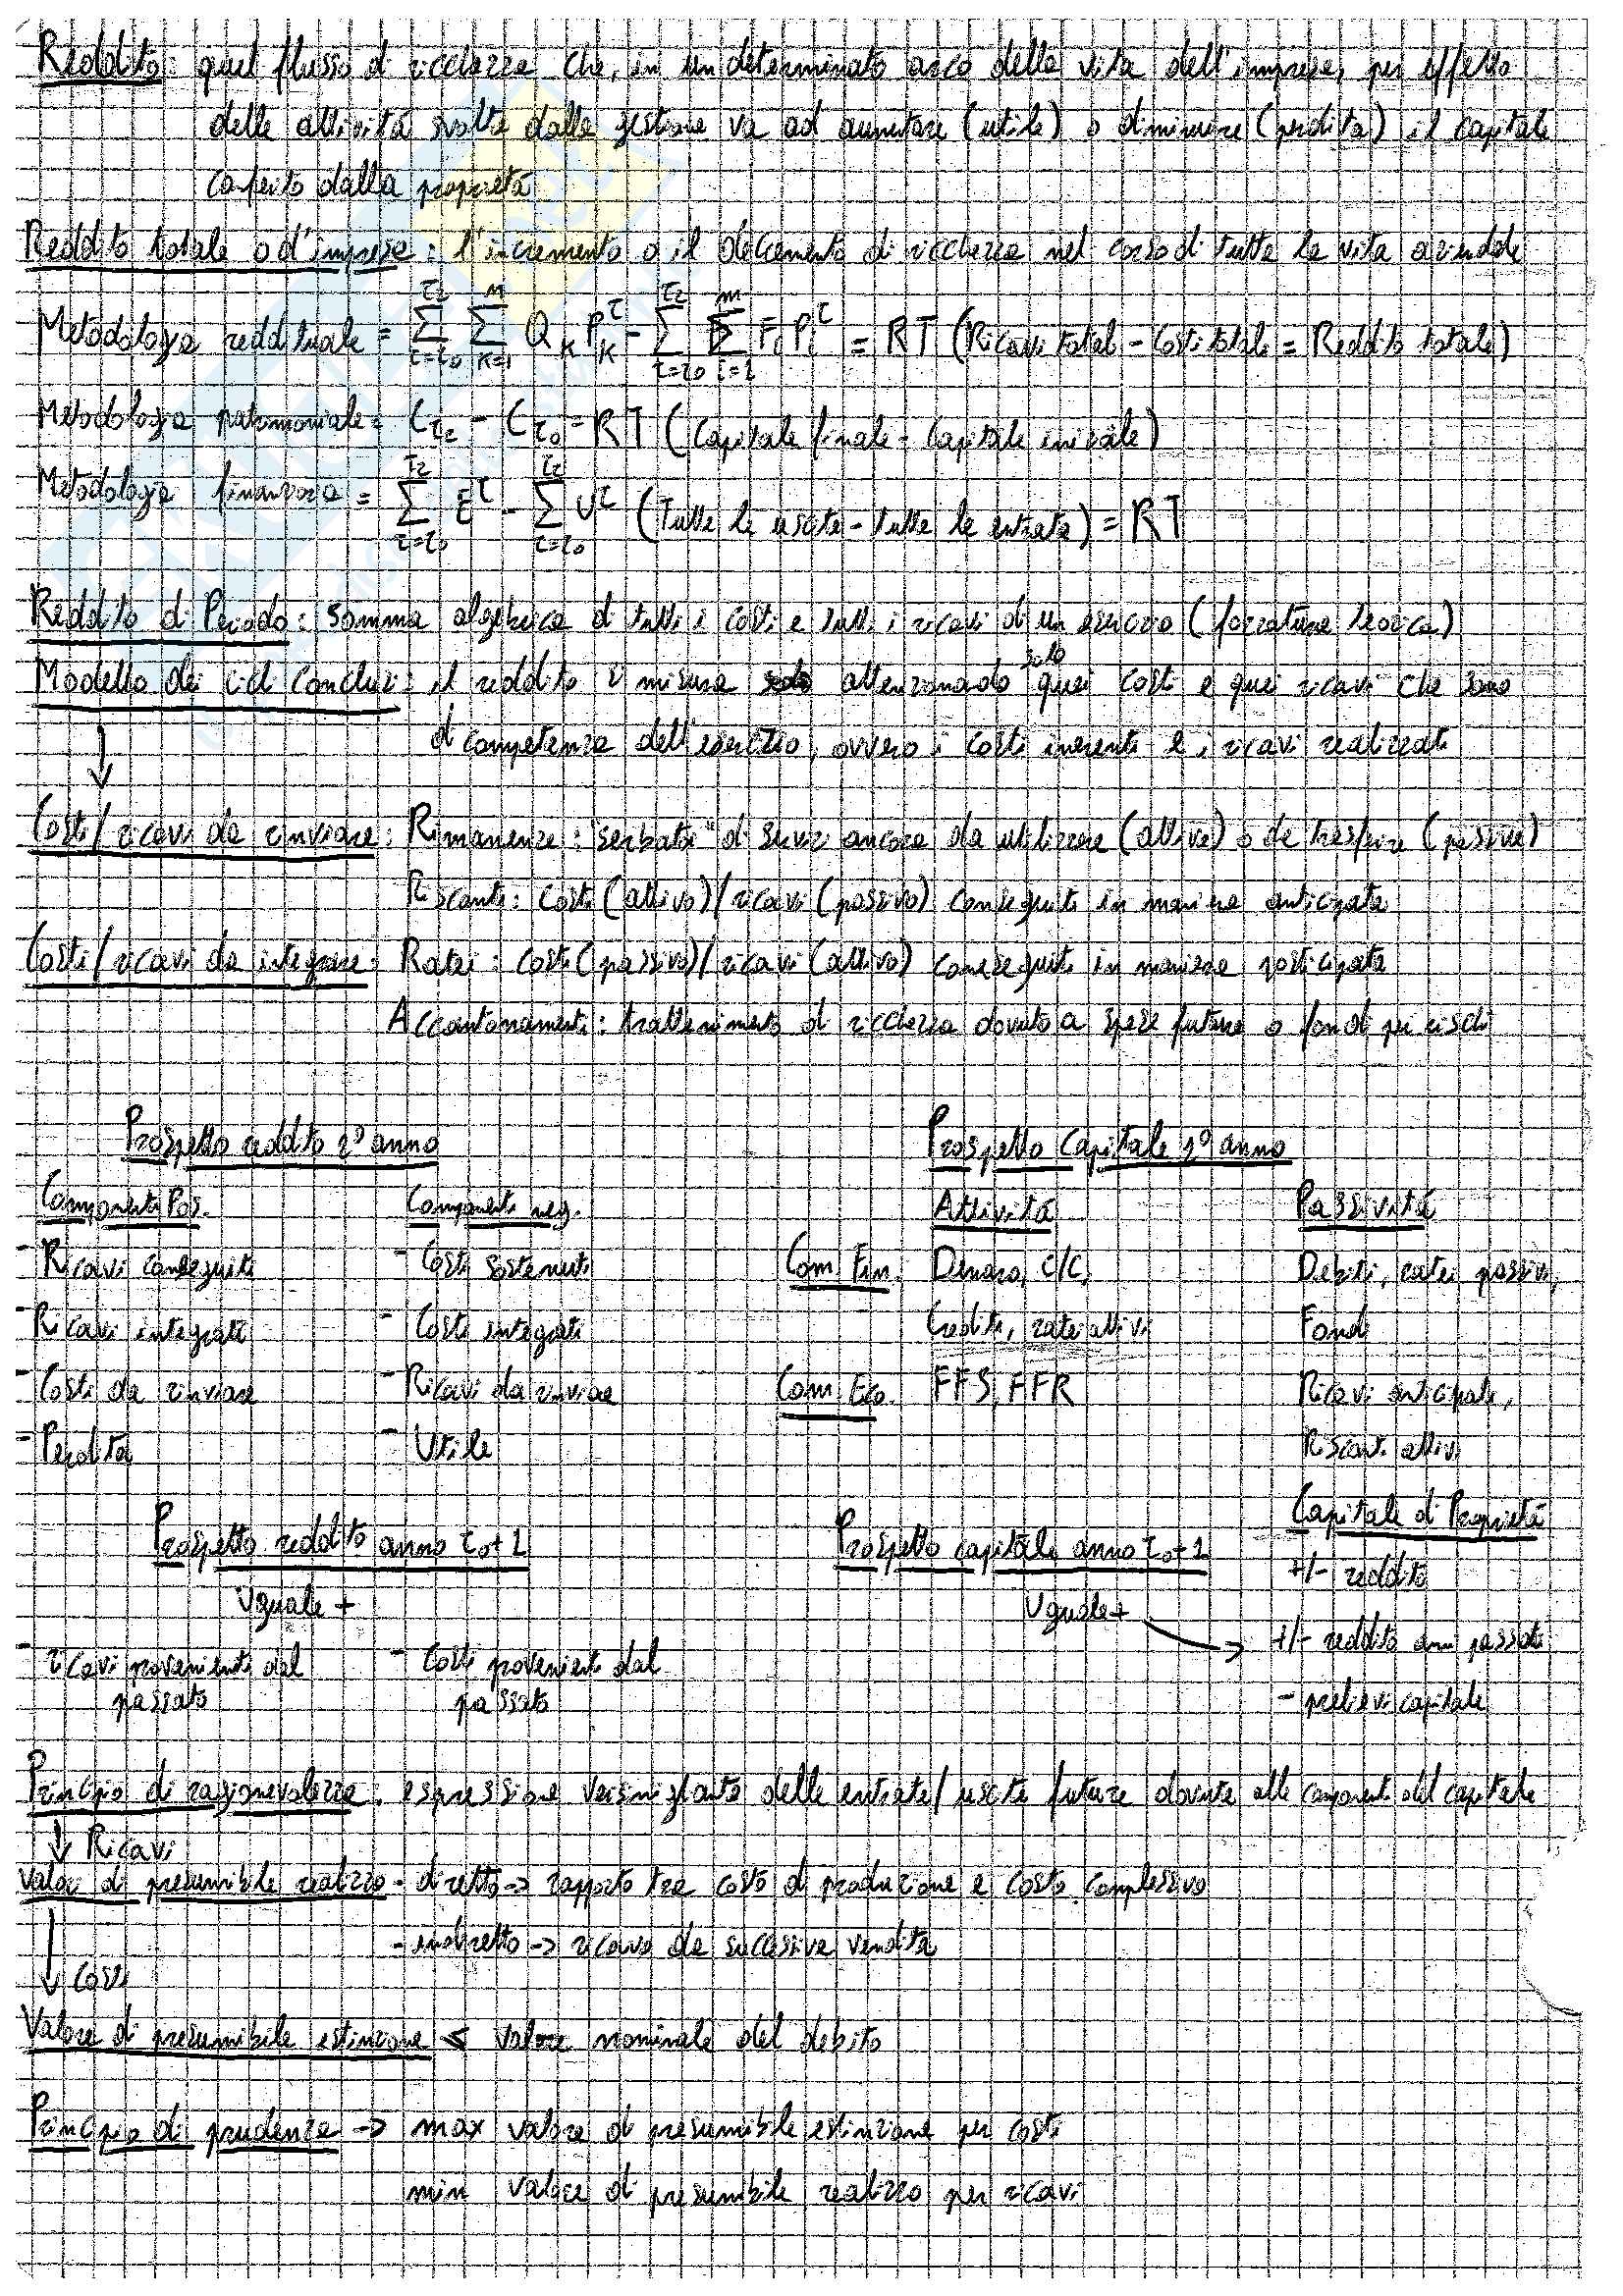 Reddito: quel flusso di ricchezza che, in un determinato arco della vita dell'impresa, per effetto
delle attività svolte dalla gestione va ad aumentare (utile) o diminuire (perdita) il capitale
conferito dalla proprietà
Reddito totale o d'impresa: l'incremento o il decremento di ricchezza nel corso di tutta la vita aziendale
Metodologia reddituale = Σ Σ Q_K P_K^τ - Σ Σ F_i P_i^τ = RT (Ricavi totali - Costi totali = Reddito totale)
Metodologia patrimoniale = C_τz - C_τ0 = RT (Capitale finale - Capitale iniziale)
Metodologia finanziaria = Σ E^τ - Σ U^τ (Tutte le uscite - tutte le entrate) = RT
Reddito di Periodo: somma algebrica di tutti i costi e tutti i ricavi di un esercizio (forzatura teorica)
Modello dei cicli conclusi: il reddito si misura attenzionando solo quei costi e quei ricavi che sono
di competenza dell'esercizio, ovvero i costi inerenti e i ricavi realizzati
Costi/ricavi da rinviare: Rimanenze: "serbatoi" di servizi ancora da utilizzare (attive) o da trasferire (passive)
Risconti: costi (attivo)/ricavi (passivo) conseguiti in maniera anticipata
Costi/ricavi da integrare: Ratei: costi (passivo)/ricavi (attivo) conseguiti in maniera posticipata
Accantonamenti: trattenimento di ricchezza dovuto a spese future o fondi per rischi
Prospetto reddito 1° anno Prospetto Capitale 1° anno
Componenti Pos. Componenti neg. Attività Passività
- Ricavi conseguiti - Costi sostenuti Com. Fin. Denaro, C/C, Debiti, ratei passivi,
- Ricavi integrati - Costi integrati Crediti, ratei attivi Fondi
- Costi da rinviare - Ricavi da rinviare Com. Eco. FFS, FFR Ricavi anticipati,
- Perdita - Utile Riscont. attivi
Capitale di Proprietà
Prospetto reddito anno τ0+1 Prospetto capitale anno τ0+1
+/- reddito
Uguale + Uguale +
+/- reddito anni passati
- ricavi provenienti dal passato - Costi provenienti dal passato
- prelievi capitale
Principio di ragionevolezza: espressione verosimigliante delle entrate/uscite future dovute alle componenti del capitale
↓ Ricavi
Valori di presumibile realizzo - diretto → rapporto tra costo di produzione e costo complessivo
- indiretto → ricavo da successiva vendita
↓ Costi
Valore di presumibile estinzione ≤ valore nominale del debito
Principio di prudenza → max valore di presumibile estinzione per costi
min valore di presumibile realizzo per ricavi